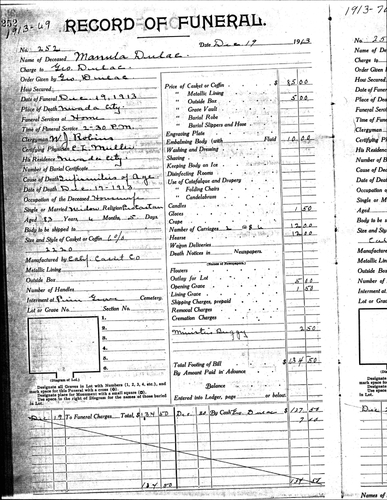 1913-69
1913-70
252
RECORD OF FUNERAL.
No. 252
Date Dec 19 1913
Name of Deceased Manula Dulac
Charge to Geo. Dulac
Order Given by Geo. Dulac
How Secured
Date of Funeral Dec 19, 1913
Place of Death Nevada City
Funeral Services at Home
Time of Funeral Service 2-30 P.M.
Clergyman W J. Robins
Certifying Physician C. T. Muller
His Residence Nevada City
Number of Burial Certificate
Cause of Death Infirmities of Age
Date of Death Dec. 17-1913
Occupation of the Deceased Housewife
Single or Married Widow Religion Protestant
Aged 83 Years 4 Months 5 Days
Body to be shipped to
Size and Style of Casket or Coffin 6/0
2220
Manufactured by Calf. Casket Co
Metallic Lining
Outside Box
Number of Handles
Interment at Pine Grove Cemetery.
Lot or Grave No. Section No.
1.
2.
3.
4.
5.
(Diagram of Lot.)
Designate all Graves in Lot with Numbers (1, 2, 3, 4, etc.), and
mark space for this Funeral with a cross (X).
Designate place for Monument with a small square (□).
Use the space to right of Diagram for names of those buried
in Lot.
Price of Casket or Coffin $ 85.00
" Metallic Lining
" Outside Box 5 00
" Grave Vault
" Burial Robe
" Burial Slippers and Hose
Engraving Plate
Embalming Body (with Fluid 10.00
Washing and Dressing
Shaving
Keeping Body on Ice
Disinfecting Rooms
Use of Catafalque and Drapery
" Folding Chairs
" Candelabrum
Candles
Gloves 1 50
Crape
Number of Carriages 2 @ 6 12 00
Hearse 12 00
Wagon Deliveries
Death Notices in Newspapers.
(Names of Newspapers.)
Flowers
Outlay for Lot
Opening Grave 5 00
Lining Grave 1 50
Shipping Charges, prepaid
Removal Charges
Cremation Charges
Minister Buggy 2 50
Total Footing of Bill $ 134 50
By Amount Paid in Advance
Balance
Entered into Ledger, page or below.
Dec 19 To Funeral Charges, Total, $ 134 50
Dec. 20 By Cash Geo Dulac $ 127.50
7 00
134 50
134 50